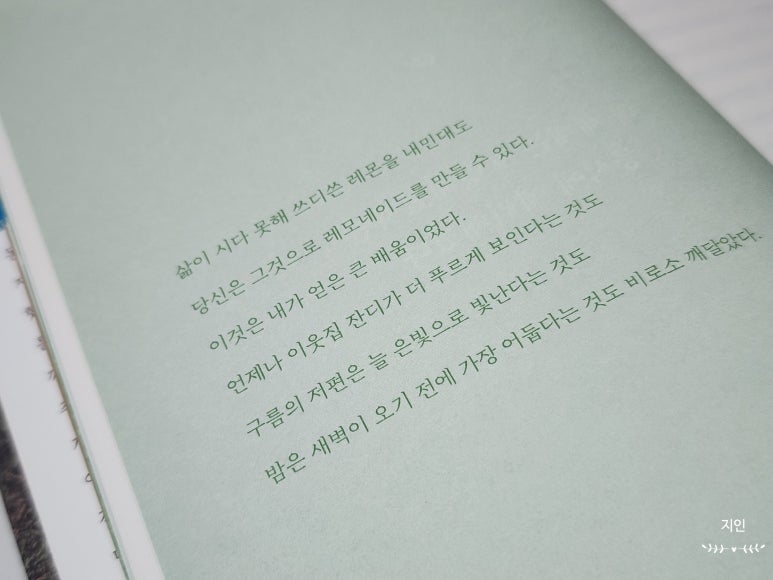 삶이 시다 못해 쓰디쓴 레몬을 내민대도
당신은 그것으로 레모네이드를 만들 수 있다.
이것은 내가 얻은 큰 배움이었다.
언제나 이웃집 잔디가 더 푸르게 보인다는 것도
구름의 저편은 늘 은빛으로 빛난다는 것도
밤은 새벽이 오기 전에 가장 어둡다는 것도 비로소 깨달았다.
지인